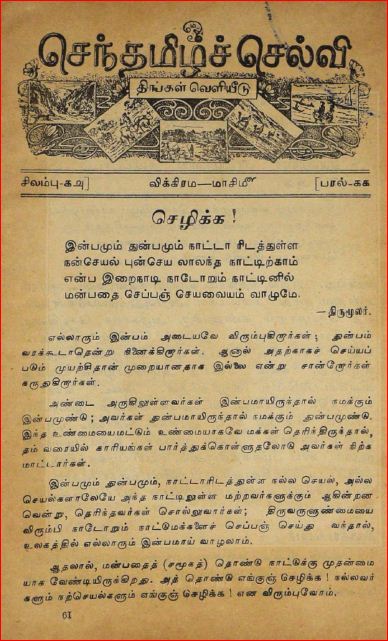 செந்தமிழ்ச் செல்வி
திங்கள் வெளியீடு
சிலம்பு-கஅ]
விக்கிரம—மாசிமீ
[பரல்-கக
செழிக்க !
இன்பமும் துன்பமும் நாட்டா ரிடத்துள்ள
நன்செயல் புன்செய லாலந்த நாட்டிற்காம்
என்ப இறைநாடி நாடோறும் நாட்டினில்
மன்பதை செப்பஞ் செயவையம் வாழுமே.
—திருமூலர்.
எல்லாரும் இன்பம் அடையவே விரும்புகிறார்கள் ; துன்பம்
வரக்கூடாதென்று நினைக்கிறார்கள். ஆனால் அதற்காகச் செய்யப்
படும் முயற்சிதான் முறையானதாக இல்லை என்று சான்றோர்கள்
கருதுகிறார்கள்.
அண்டை அருகிலுள்ளவர்கள் இன்பமாயிருந்தால் நமக்கும்
இன்பமுண்டு ; அவர்கள் துன்பமாயிருந்தால் நமக்கும் துன்பமுண்டு.
இந்த உண்மையைமட்டும் உண்மையாகவே மக்கள் தெரிந்திருந்தால்,
தம் வரையில் காரியங்கள் பார்த்துக்கொள்ளுதலோடு அவர்கள் நிற்க
மாட்டார்கள்.
இன்பமும் துன்பமும், நாட்டாரிடத்துள்ள நல்ல செயல், அல்ல
செயல்களாலேயே அந்த நாட்டிலுள்ள மற்றவர்களுக்கும் ஆகின்றன
வென்று, தெரிந்தவர்கள் சொல்லுவார்கள் ; திருவருளுண்மையை
விரும்பி நாடோறும் நாட்டுமக்களைச் செப்பஞ் செய்து வந்தால்,
உலகத்தில் எல்லாரும் இன்பமாய் வாழலாம்.
ஆதலால், மன்பதைத் (சமூகத்) தொண்டு நாட்டுக்கு முதன்மை
யாக வேண்டியிருக்கிறது. அத் தொண்டு எங்குஞ் செழிக்க ! நல்லவர்
களும் நற்செயல்களும் எங்குஞ் செழிக்க ! என விரும்புவோம்.
61